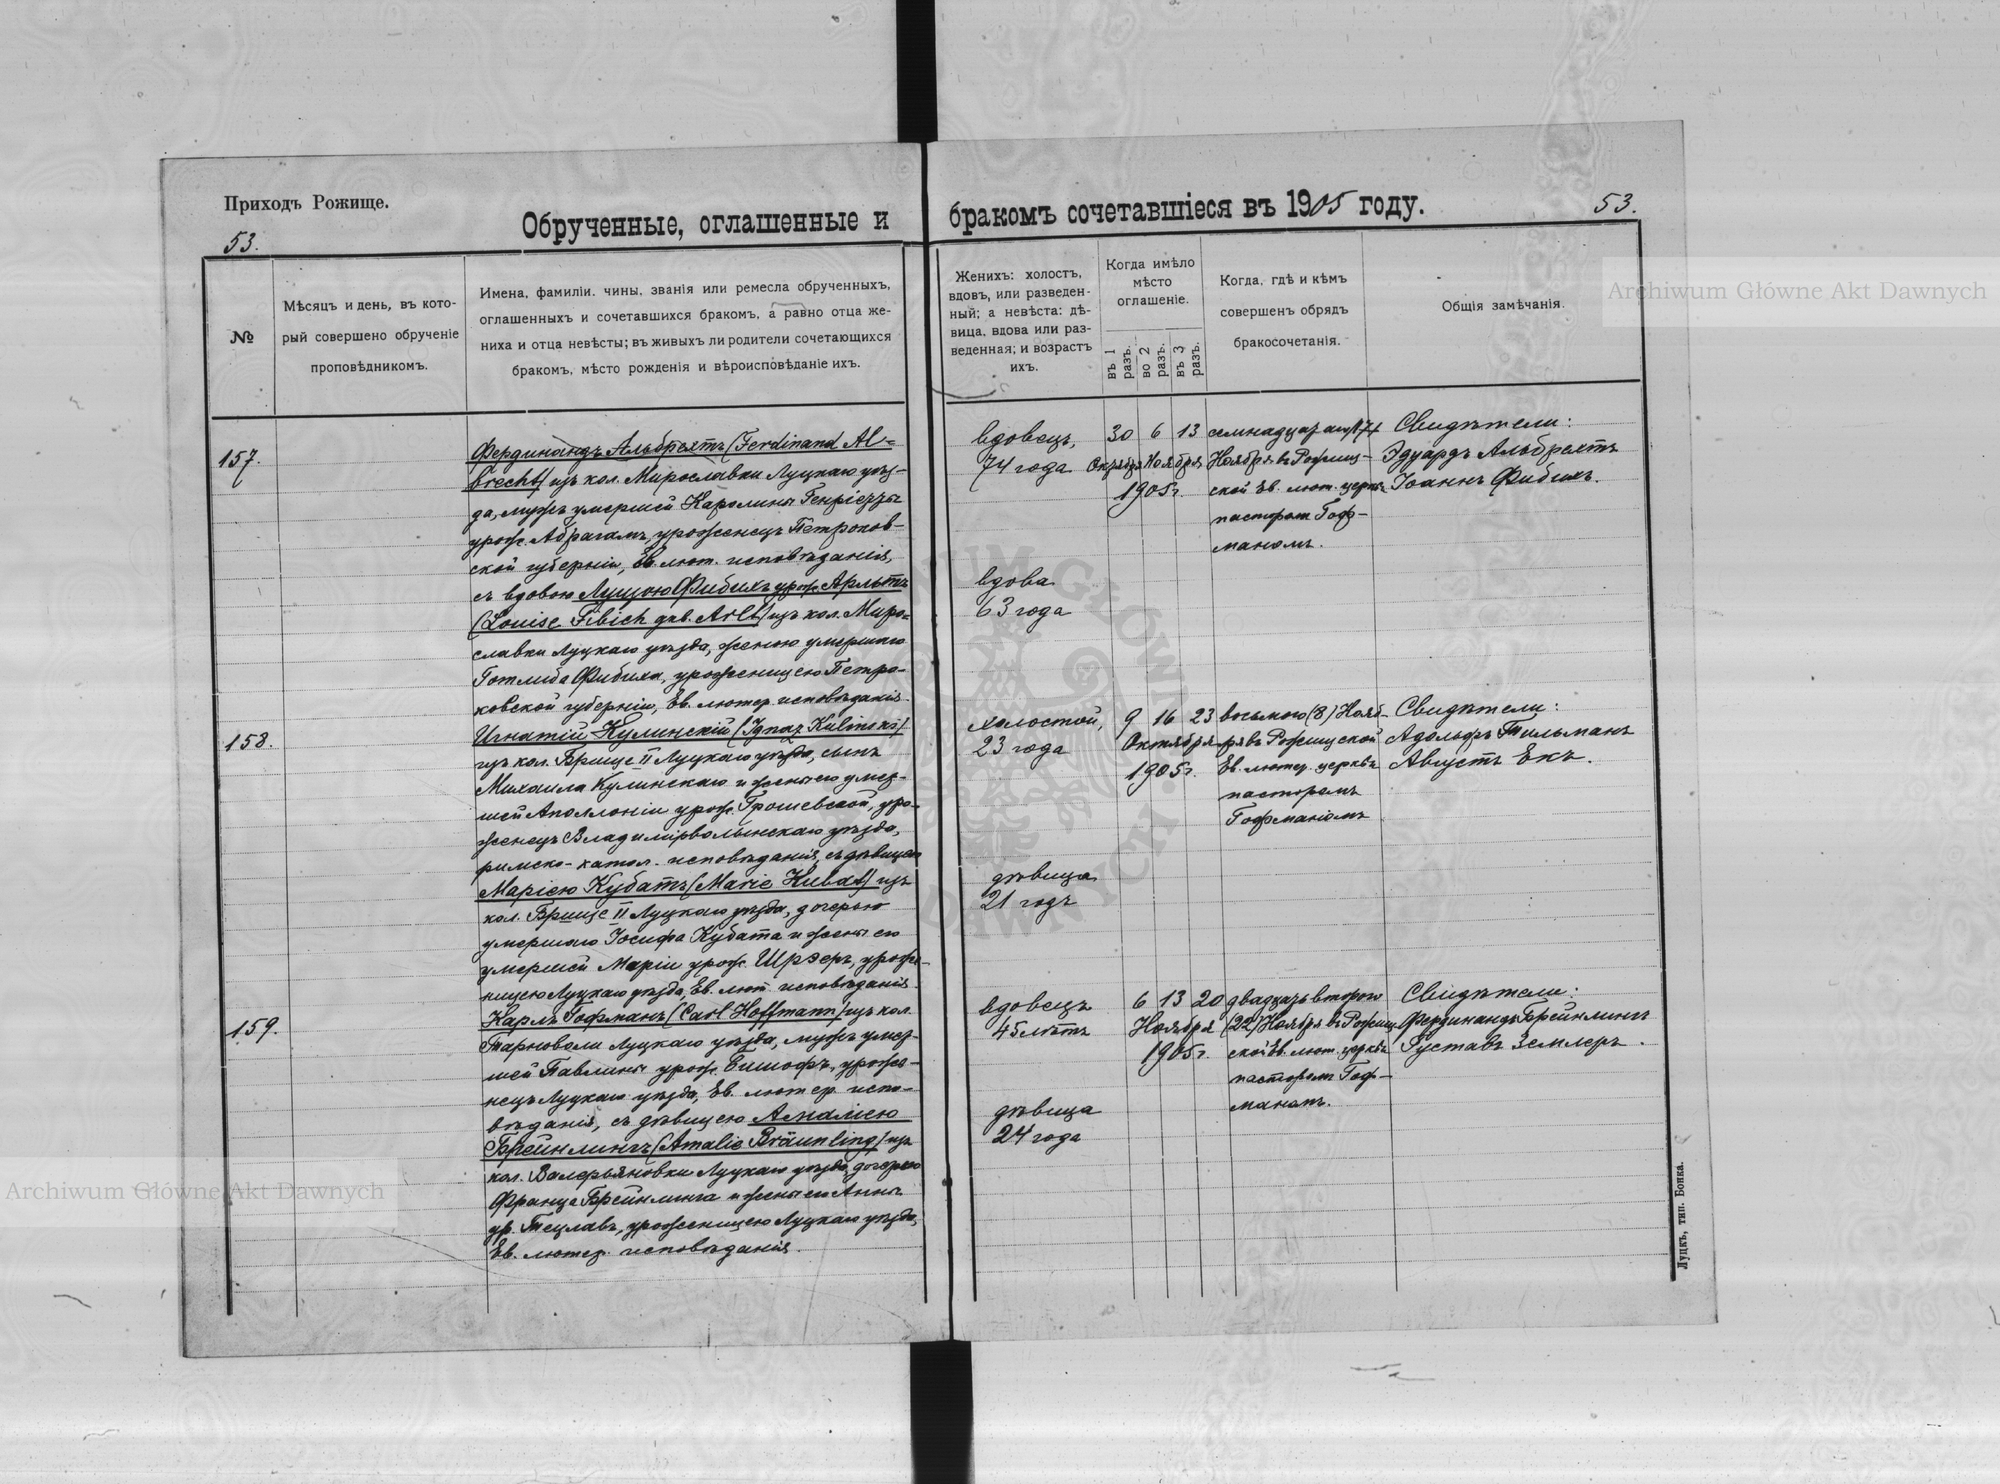 Приходъ Рожище.
53.
Обрученные, оглашенные и
бракомъ сочетавшіеся въ 1905 году.
53.
№
Мѣсяцъ и день, въ кото-
рый совершено обрученіе
проповѣдникомъ.
Имена, фамиліи, чины, званія или ремесла обрученныхъ,
оглашенныхъ и сочетавшихся бракомъ, а равно отца же-
ниха и отца невѣсты; въ живыхъ ли родители сочетающихся
бракомъ, мѣсто рожденія и вѣроисповѣданіе ихъ.
Женихъ: холостъ,
вдовъ, или разведен-
ный; а невѣста: дѣ-
вица, вдова или раз-
веденная; и возрастъ
ихъ.
Когда имѣло
мѣсто
оглашеніе.
въ 1 разъ.
во 2 разъ.
въ 3 разъ.
Когда, гдѣ и кѣмъ
совершенъ обрядъ
бракосочетанія.
Общія замѣчанія.
157.
Фердинандъ Альбрехтъ (Ferdinand Al-
brecht) изъ кол. Мирославки Луцкаго уѣз-
да, мужъ умершей Каролины Генріетты
урож. Абрагамъ, уроженецъ Петроков-
ской губерніи, Ев. лют. исповѣданія,
съ вдовою Луизою Фибихъ урож. Арльтъ
(Louise Fibich geb. Arlt) изъ кол. Миро-
славки Луцкаго уѣзда, женою умершаго
Готлиба Фибиха, уроженицею Петро-
ковской губерніи, Ев. лютер. исповѣданія.
вдовецъ,
74 года
вдова
63 года
30 6 13
Октября Ноября
1905 г.
семнадцатаго (17)
Ноября въ Рожищ-
ской Ев. лют. церкви
пасторомъ Гоф-
маномъ.
Свидѣтели:
Эдуардъ Альбрехтъ
Іоаннъ Фибихъ.
158.
Игнатій Кулинскій (Ignaz Kulinski)
изъ кол. Брище II Луцкаго уѣзда, сынъ
Михаила Кулинскаго и жены его умер-
шей Аполлоніи урож. Грошевской, уро-
женецъ Владимірволынскаго уѣзда,
римско-катол. исповѣданія, съ дѣвицею
Маріею Кубатъ (Marie Kubat) изъ
кол. Брище II Луцкаго уѣзда, дочерью
умершаго Іосифа Кубата и жены его
умершей Маріи урож. Шрэеръ, уроже-
ницею Луцкаго уѣзда, Ев. лют. исповѣданія.
холостой,
23 года
дѣвица
21 годъ
9 16 23
Октября
1905 г.
восьмого (8) Нояб-
ря въ Рожищской
Ев. лютер. церкви
пасторомъ
Гофманомъ
Свидѣтели:
Адольфъ Тильманъ
Августъ Екъ.
159.
Карлъ Гофманъ (Carl Hoffmann) изъ кол.
Тарноволи Луцкаго уѣзда, мужъ умер-
шей Павлины урож. Бишофъ, уроже-
нецъ Луцкаго уѣзда, Ев. лютер. испо-
вѣданія, съ дѣвицею Амаліею
Брейнлингъ (Amalie Bräunling) изъ
кол. Валерьяновки Луцкаго уѣзда, дочерью
Франца Брейнлинга и жены его Анны
ур. Тецлавъ, уроженицею Луцкаго уѣзда,
Ев. лютер. исповѣданія.
вдовецъ
45 лѣтъ
дѣвица
24 года
6 13 20
Ноября
1905 г.
двадцать второго
(22) Ноября въ Рожищ-
ской Ев. лют. церкви
пасторомъ Гоф-
маномъ.
Свидѣтели:
Фердинандъ Брейнлингъ
Густавъ Землеръ.
Луцкъ, тип. Бонка.
Archiwum Główne Akt Dawnych
Archiwum Główne Akt Dawnych